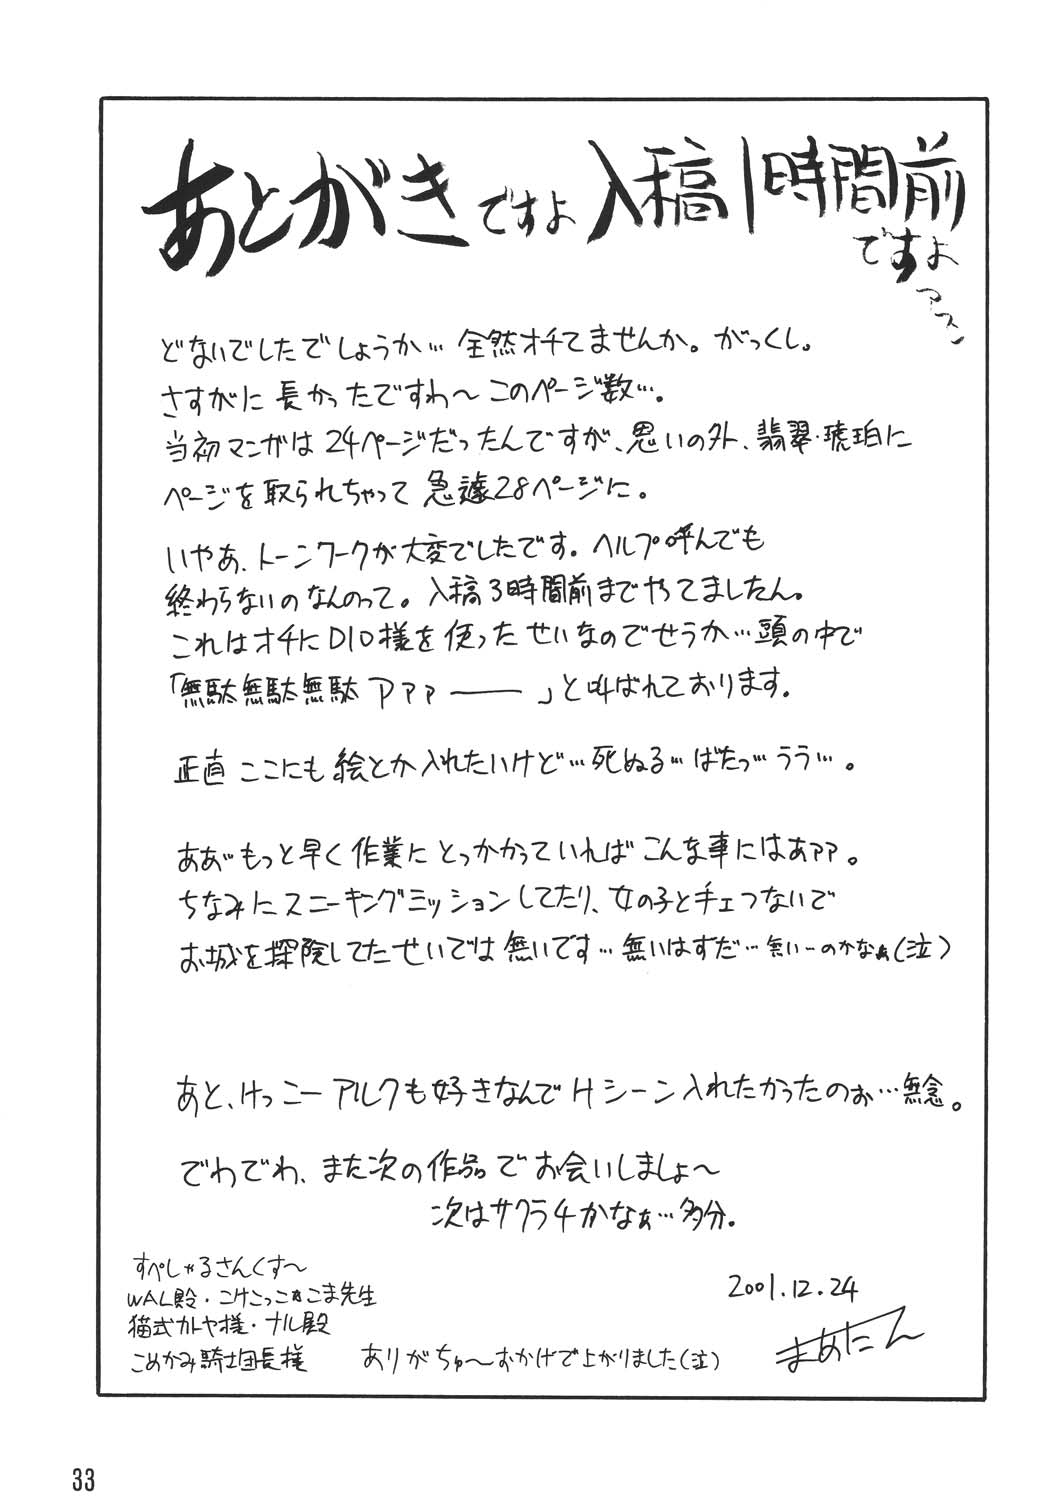 あとがきですよ 入稿1時間前
ですよ
アスン
どないでしたでしょうか… 全然オチてませんか。がっくし。
さすがに長かったですわ～このページ数…。
当初マンガは24ページだったんですが、思いの外、翡翠・琥珀に
ページを取られちゃって急遽28ページに。
いやあ、トーンワークが大変でしたです。ヘルプ呼んでも
終わらないのなんのって。入稿3時間前までやってましたん。
これはオチにDIO様を使ったせいなのでせうか…頭の中で
「無駄無駄無駄アァァ――」と叫ばれております。
正直ここにも絵とか入れたいけど…死ぬる…ばたっ…うう…。
ああ゛もっと早く作業にとっかかっていればこんな事にはぁァァ。
ちなみにスニーキングミッションしてたり、女の子と手ェつないで
お城を探険してたせいでは無いです…無いはずだ…無い…のかなぁ(泣)
あと、けっこーアルクも好きなんでHシーン入れたかったのぉ…無念。
でわでわ、また次の作品でお会いしましょ～
次はサクラ4かなぁ…多分。
すぺしゃるさんくす～
WAL殿・こけこっこ*こま先生
猫式カトヤ様・ナル殿
こめかみ騎士団長様 ありがちゅ～おかげで上がりました(泣)
2001.12.24
まあたん
33